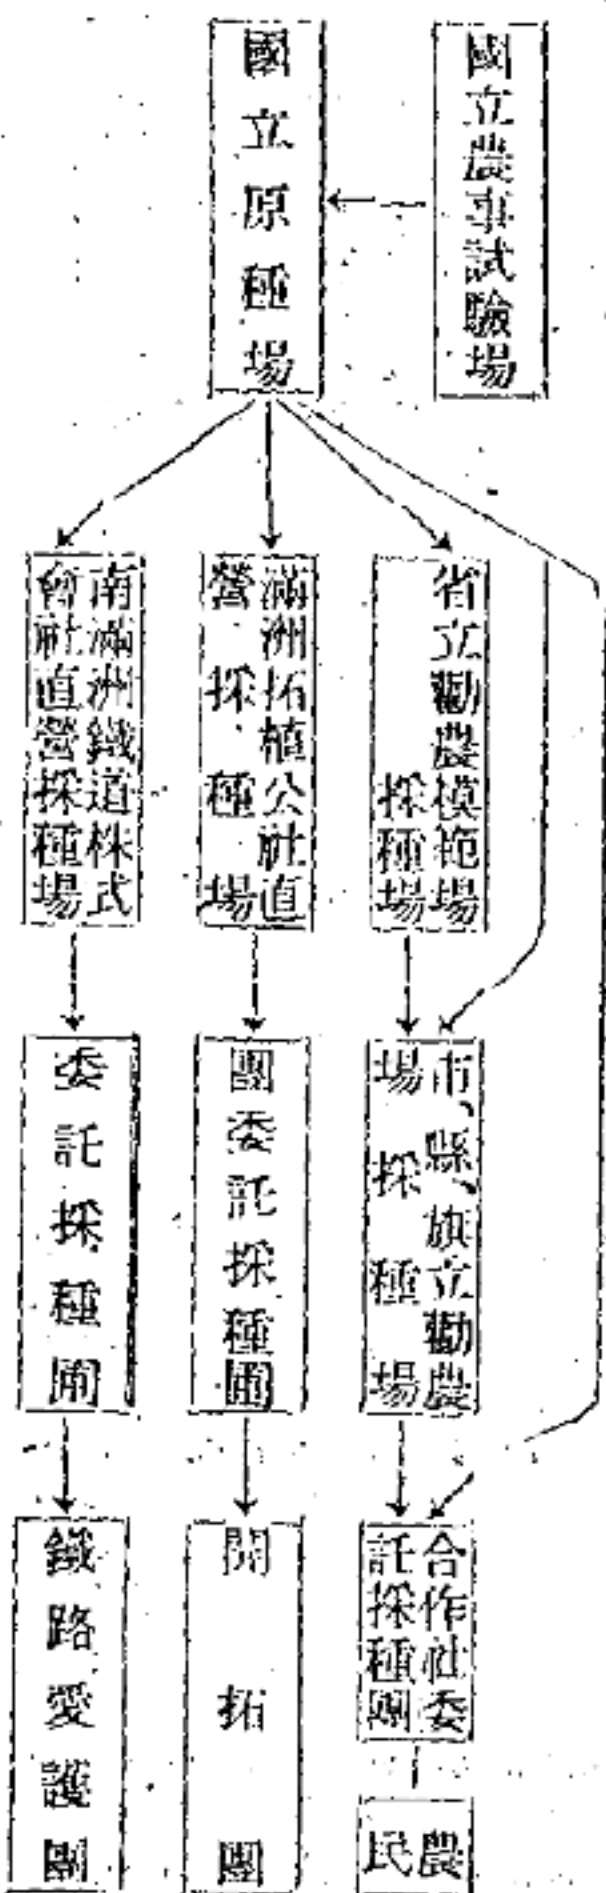 國立農事試驗場
國立原種場
省立勸農模範場
採種場
滿洲拓植公社直
營採種場
南滿洲鐵道株式
會社直營採種場
市、縣、旗立勸農
場採種場
團委託採種圃
委託採種圃
合作社委
託採種圃
農民
開拓團
鐵路愛護團